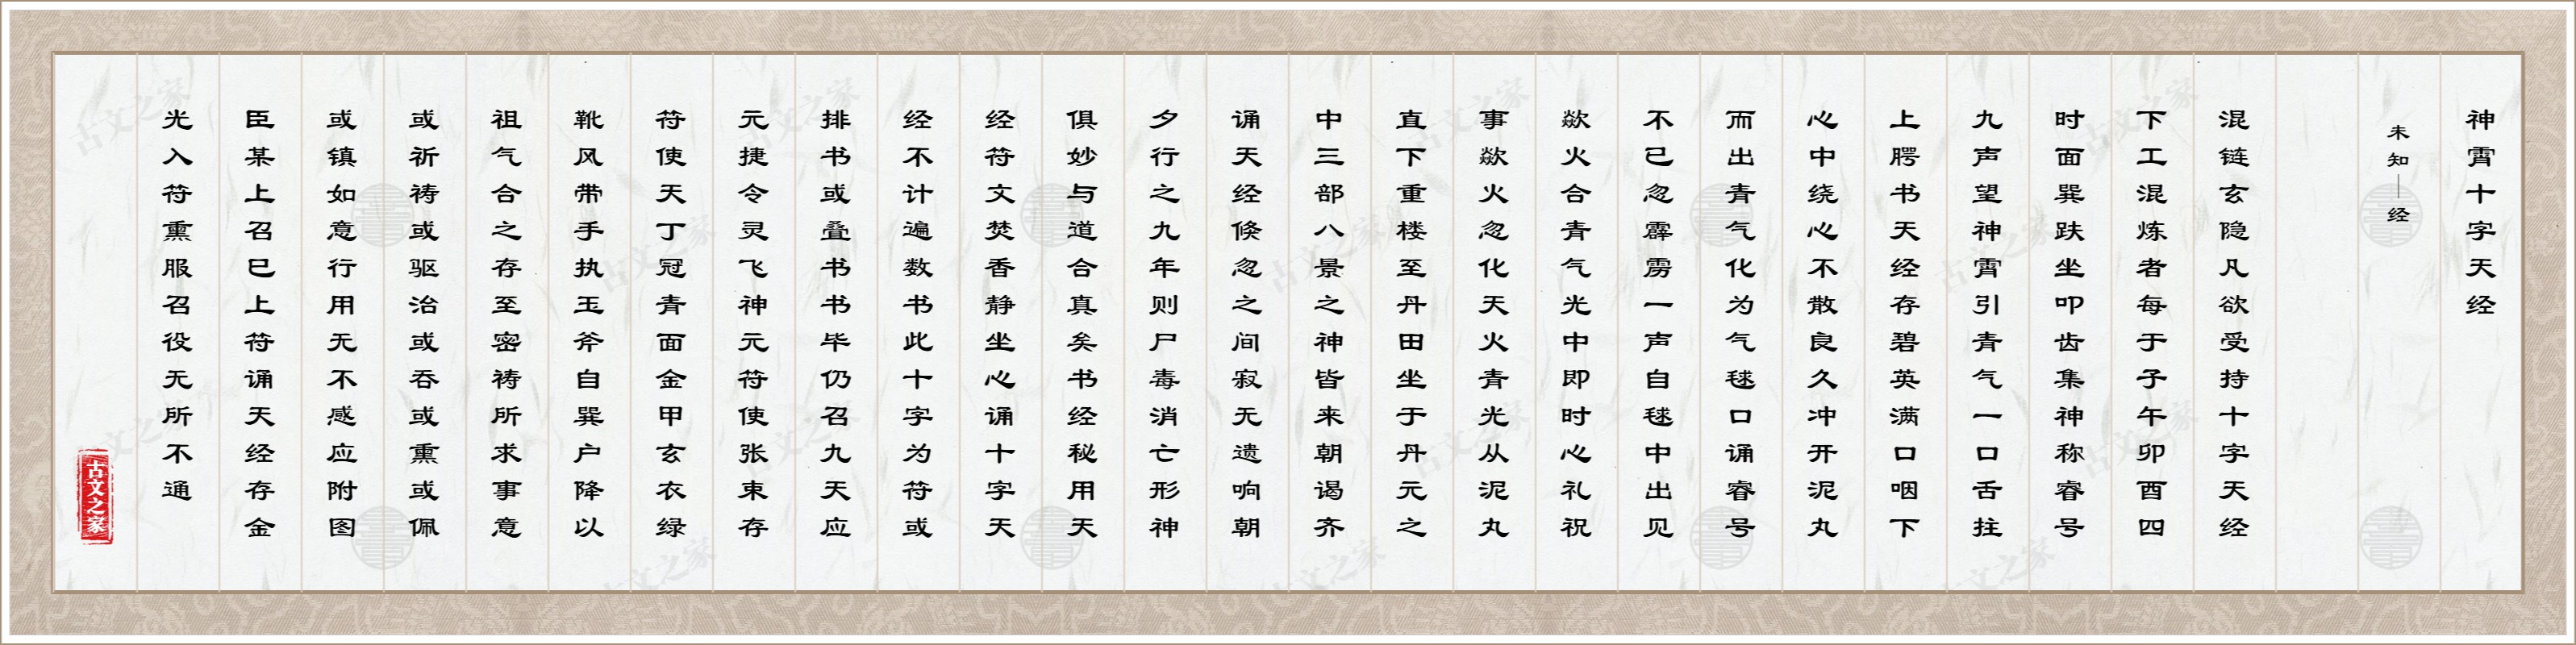 神霄十字天经
未知｜经
混链玄隐凡欲受持十字天经
下工混炼者每于子午卯酉四
时面巽趺坐叩齿集神称睿号
九声望神霄引青气一口舌拄
上腭书天经存碧英满口咽下
心中绕心不散良久冲开泥丸
而出青气化为气毬口诵睿号
不已忽霹雳一声自毬中出见
歘火合青气光中即时心礼祝
事歘火忽化天火青光从泥丸
直下重楼至丹田坐于丹元之
中三部八景之神皆来朝谒齐
诵天经倏忽之间寂无遗响朝
夕行之九年则尸毒消亡形神
俱妙与道合真矣书经秘用天
经符文焚香静坐心诵十字天
经不计遍数书此十字为符或
排书或叠书书毕仍召九天应
元捷令灵飞神元符使张束存
符使天丁冠青面金甲玄衣绿
靴风带手执玉斧自巽户降以
祖气合之存至密祷所求事意
或祈祷或驱治或吞或熏或佩
或镇如意行用无不感应附图
臣某上召巳上符诵天经存金
光入符熏服召役无所不通
古文之家